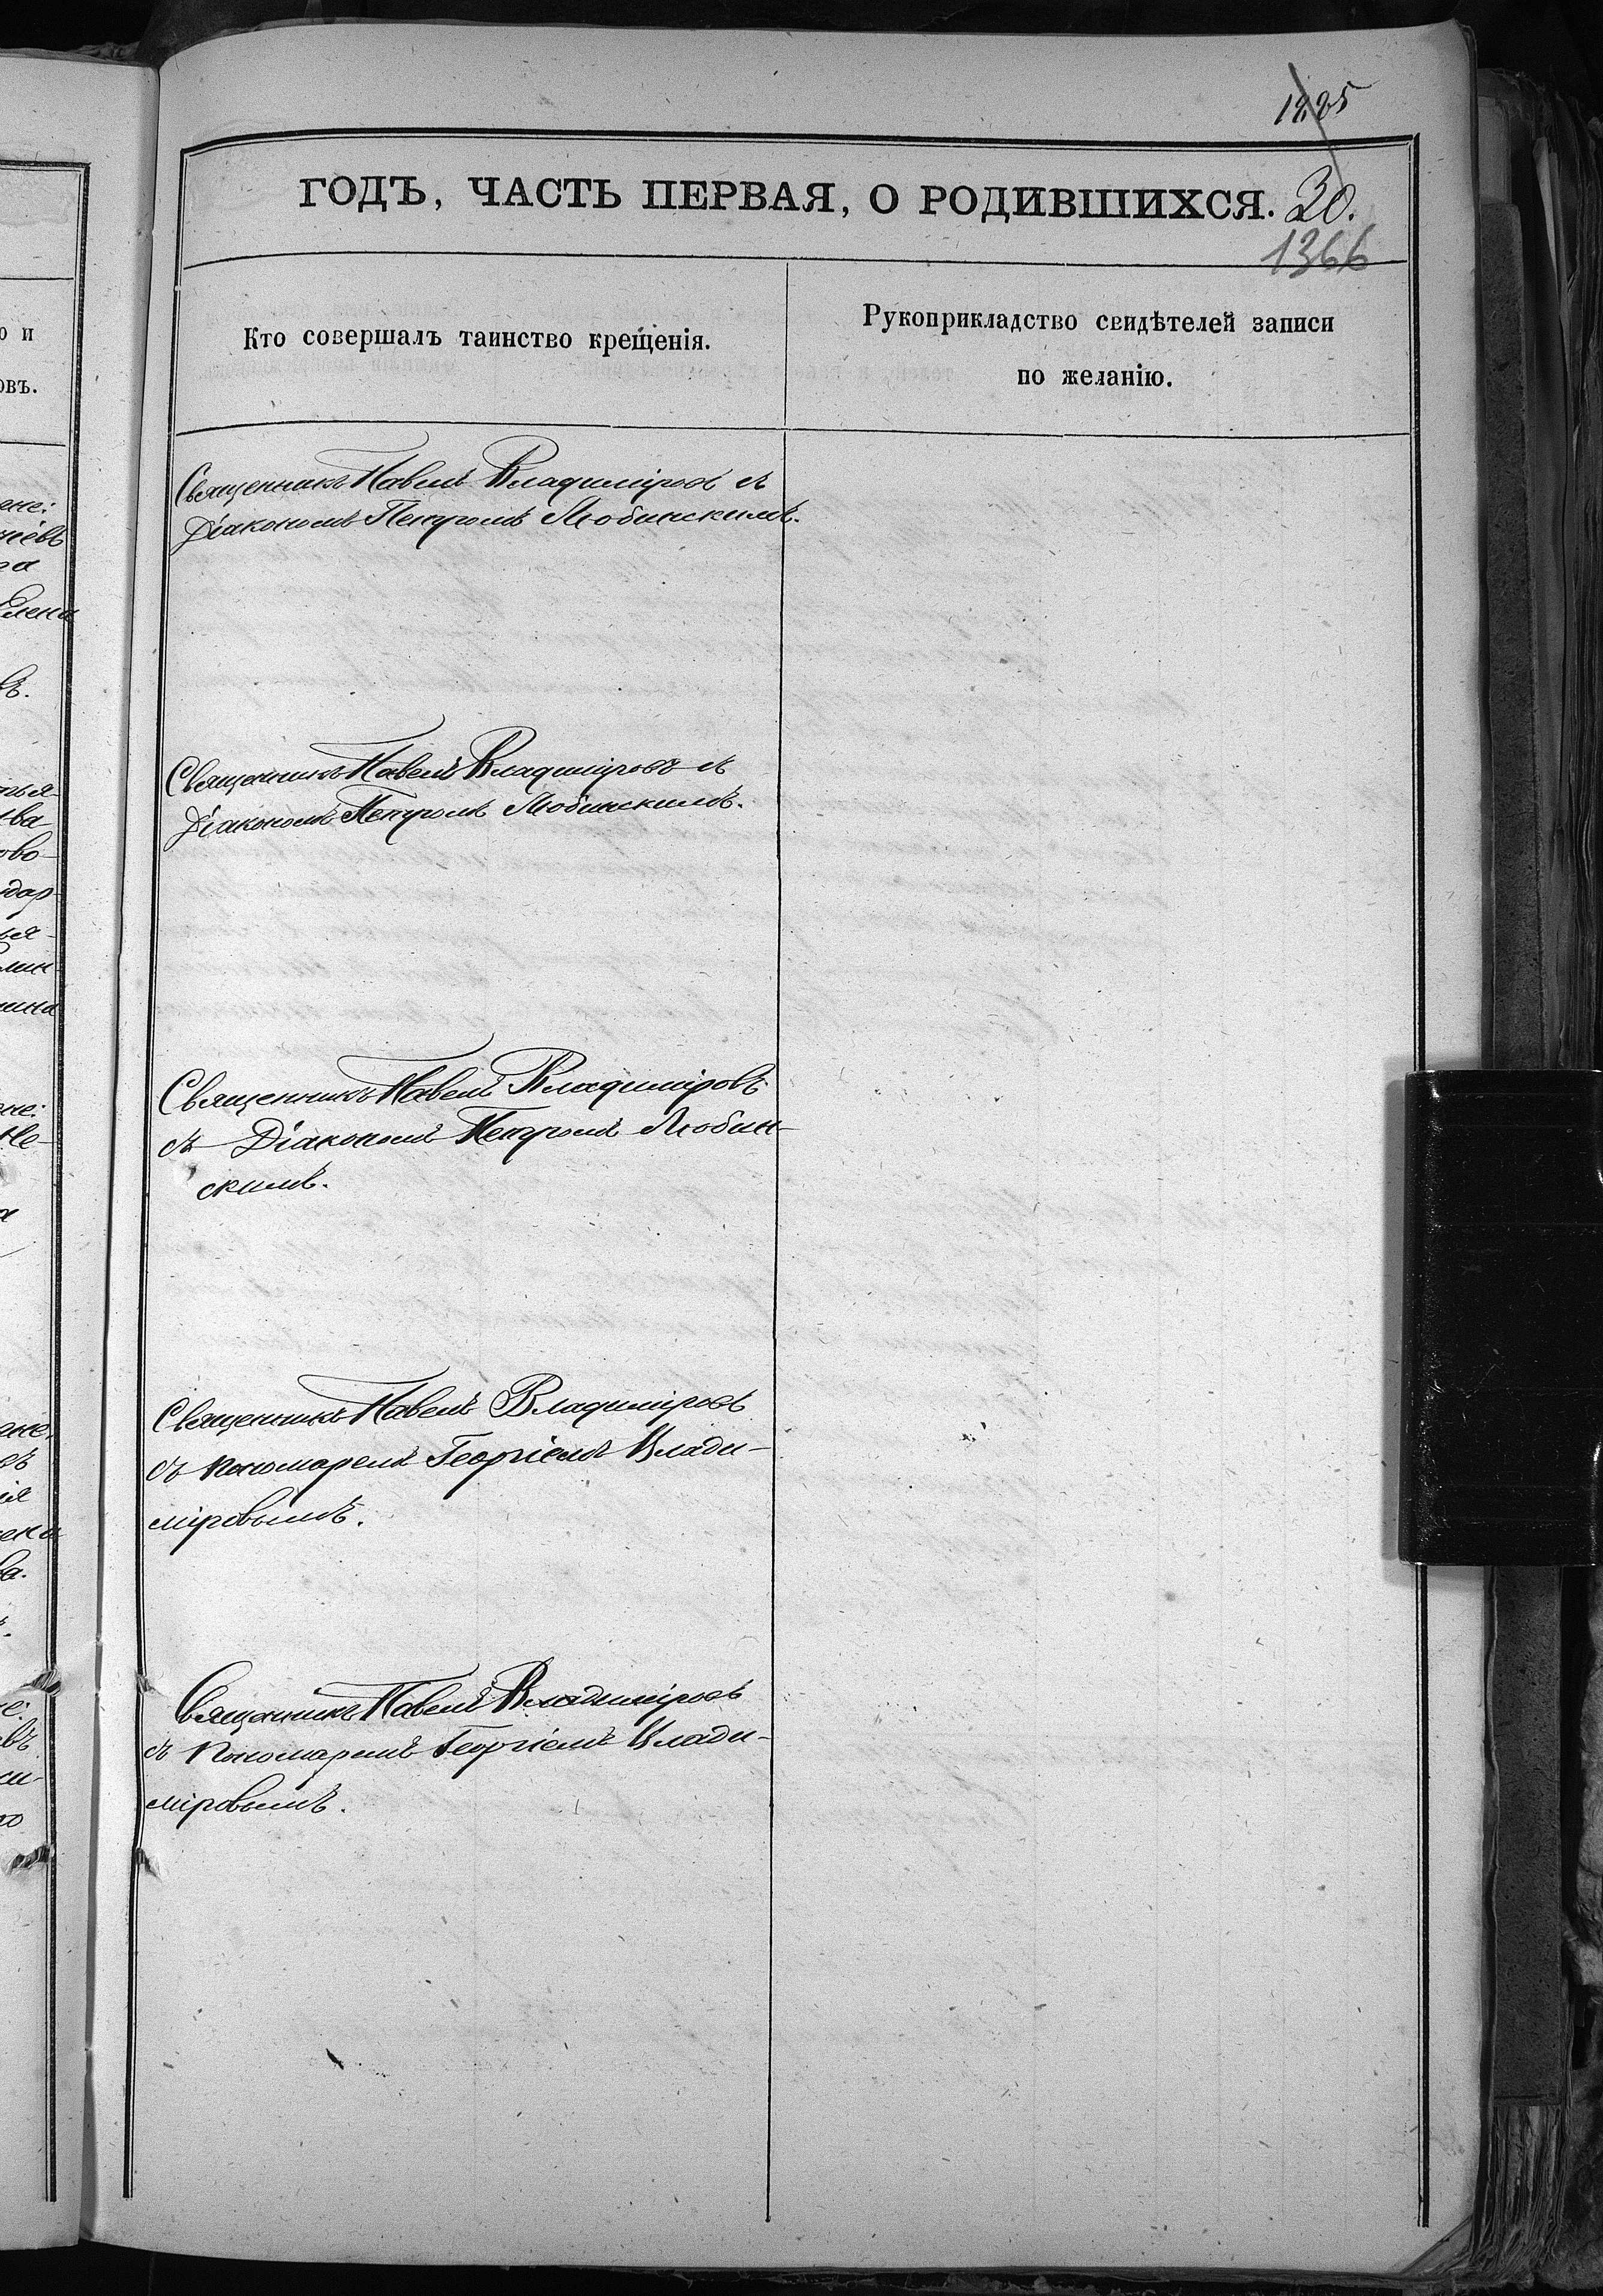 ГОДЪ, ЧАСТЬ ПЕРВАЯ, О РОДИВШИХСЯ. 30.
1366
Кто совершалъ таинство крещенія.
Рукоприкладство свидѣтелей записи
по желанію.
Священникъ Павелъ Владиміровъ съ
Діакономъ Петромъ Любинскимъ.
Священникъ Павелъ Владиміровъ съ
Діакономъ Петромъ Любинскимъ.
Священникъ Павелъ Владиміровъ
съ Діакономъ Петромъ Любин-
скимъ.
Священникъ Павелъ Владиміровъ
съ Пономаремъ Георгіемъ Влади-
міровымъ.
Священникъ Павелъ Владиміровъ
съ Пономаремъ Георгіемъ Влади-
міровымъ.